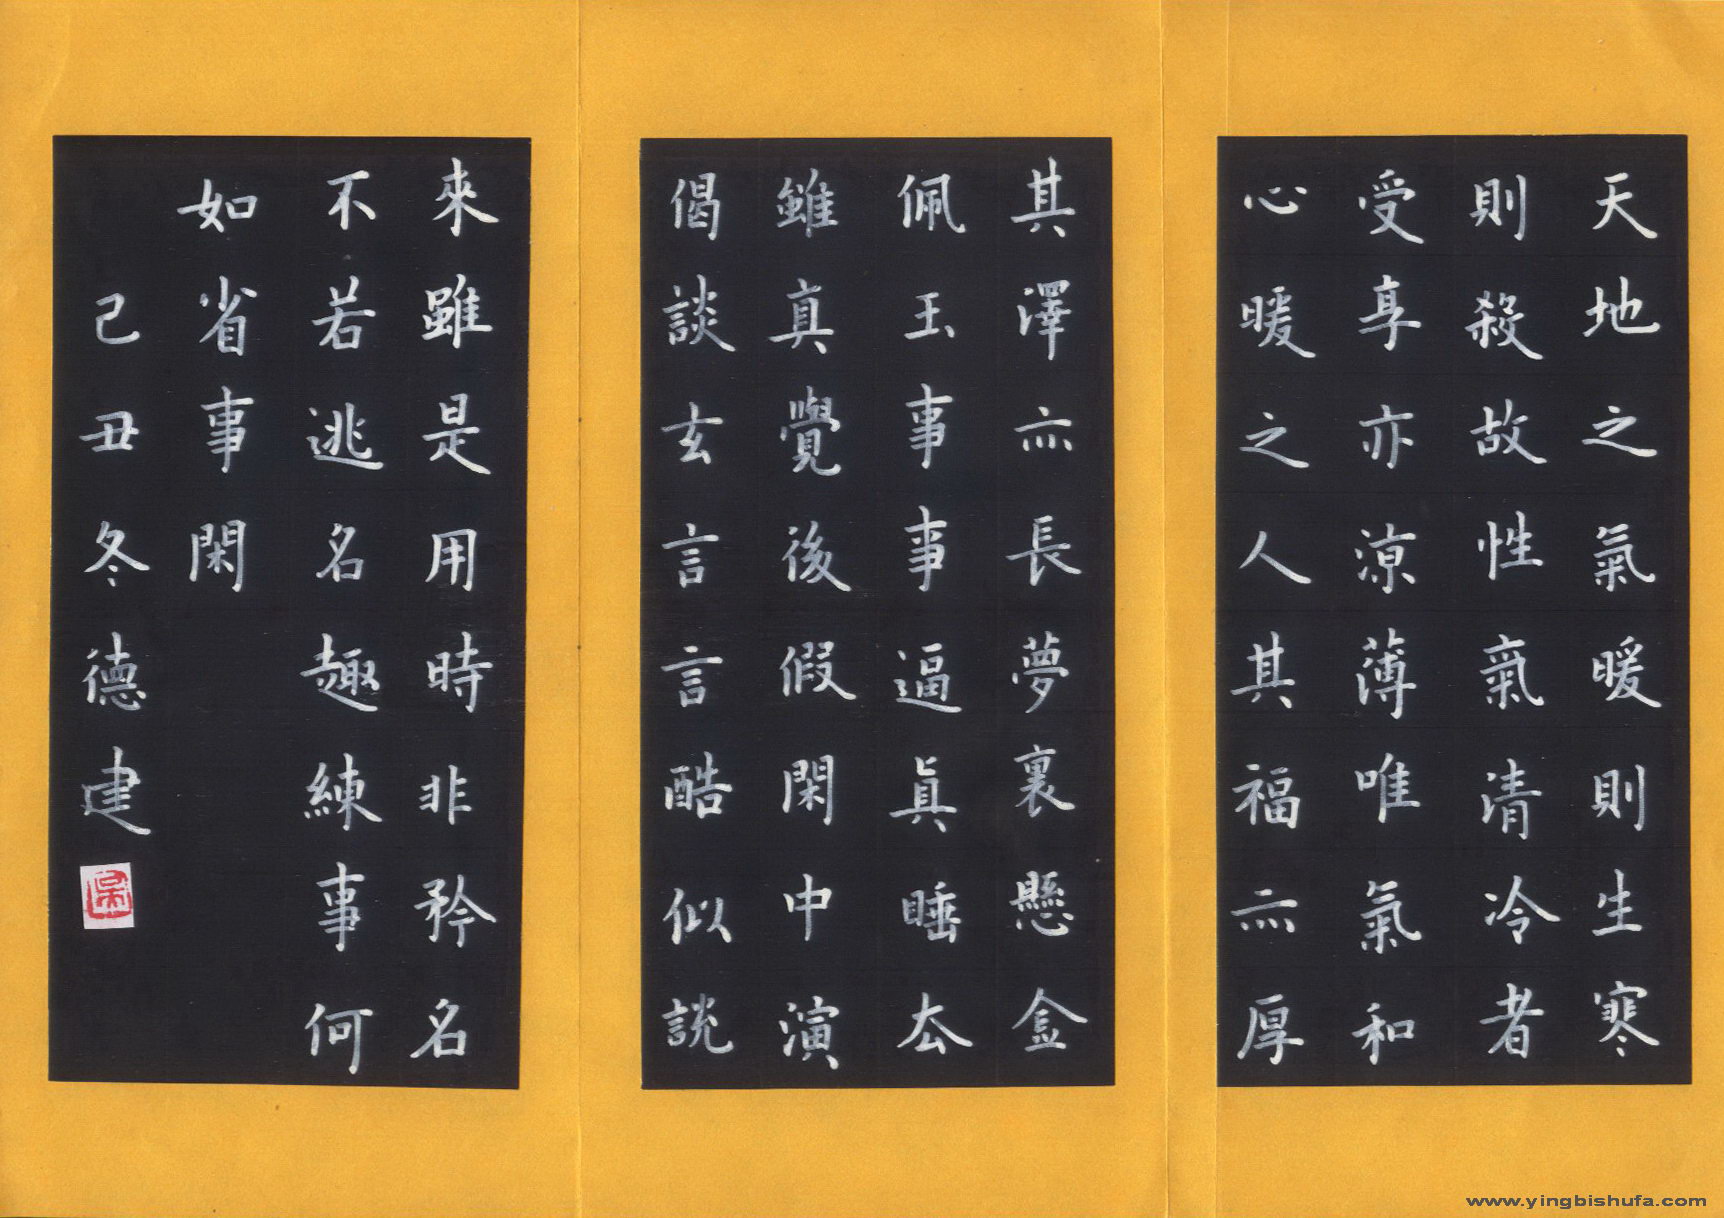 天地之氣暖則生寒
則殺故性氣清冷者
受享亦涼薄唯氣和
心暖之人其福亦厚
其澤亦長夢裏懸金
佩玉事事逼真睡去
雖真覺後假閑中演
偈談玄言言酷似說
來雖是用時非矜名
不若逃名趣練事何
如省事閑
己丑冬德建
www.yingbishufa.com